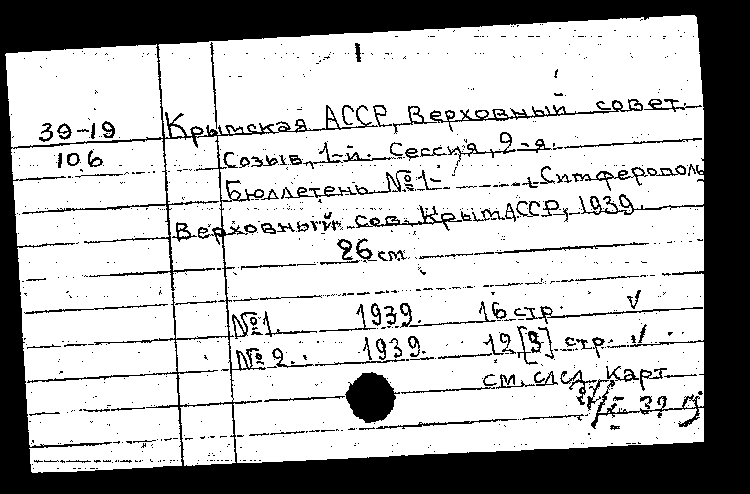 1
39-19 Крымская АССР, Верховный совет.
106 Созыв, 1-й. Сессия, 2-я.
Бюллетень №1- ..., Симферополь
Верховный сов. КрымАССР, 1939.
26 см
№1. 1939. 16 стр. √
№ 2.. 1939. 12 [3] стр. √
см. след. карт.
39